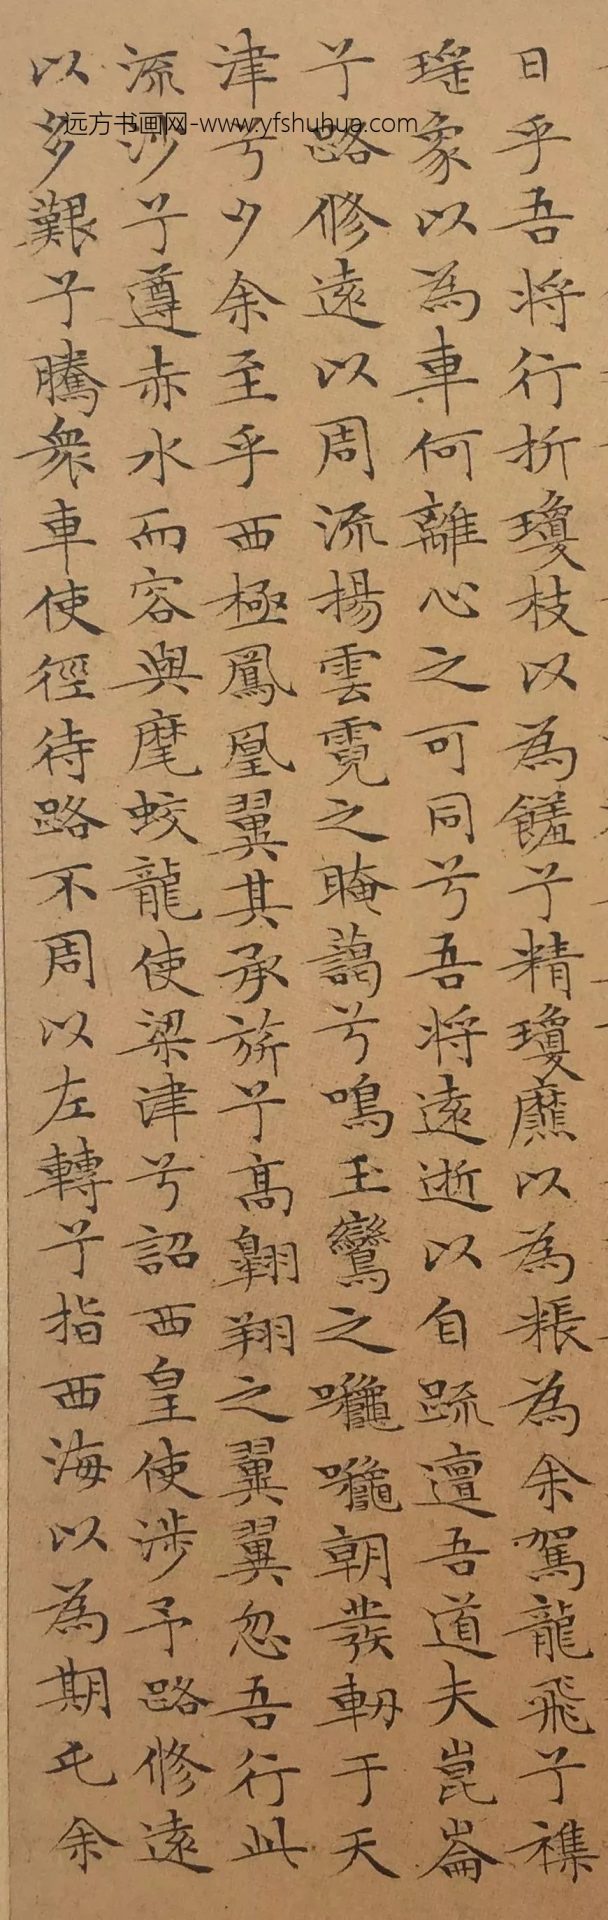 日乎吾将行折瓊枝以為饈兮精瓊爢以為粻為余駕龍飛兮襍
瑤象以為車何離心之可同兮吾将遠逝以自疏邅吾道夫崑崙
兮路修遠以周流揚雲霓之晻藹兮鳴玉鸞之啾啾朝發軔于天
津兮夕余至乎西極鳳凰翼其承旂兮高翱翔之翼翼忽吾行此
流沙兮遵赤水而容與麾蛟龍使梁津兮詔西皇使涉予路修遠
以多艱兮騰衆車使徑待路不周以左轉兮指西海以為期屯余
远方书画网-www.yfshuhua.com